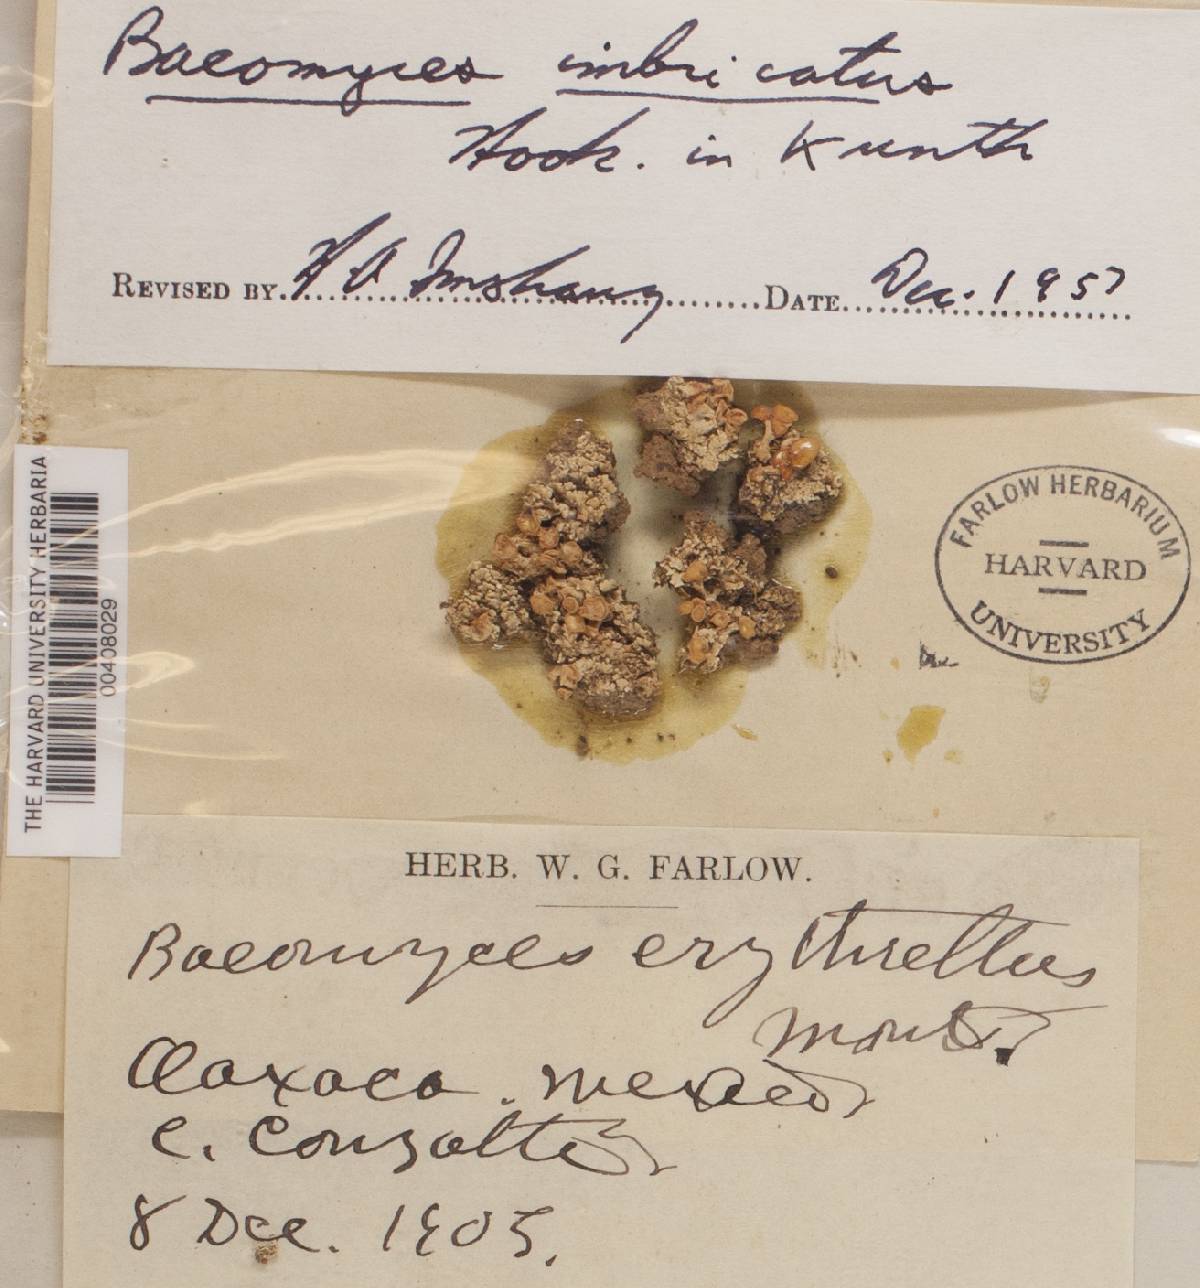 Baeomyces imbricatus
Hook. in Kunth
REVISED BY H A Imshaug DATE Dec. 1957
THE HARVARD UNIVERSITY HERBARIA
00408029
FARLOW HERBARIUM
HARVARD
UNIVERSITY
HERB. W. G. FARLOW.
Baeomyces erythrellus
Mont.
Oaxaca. Mexico
C. Conzatti
8 Dec. 1905.